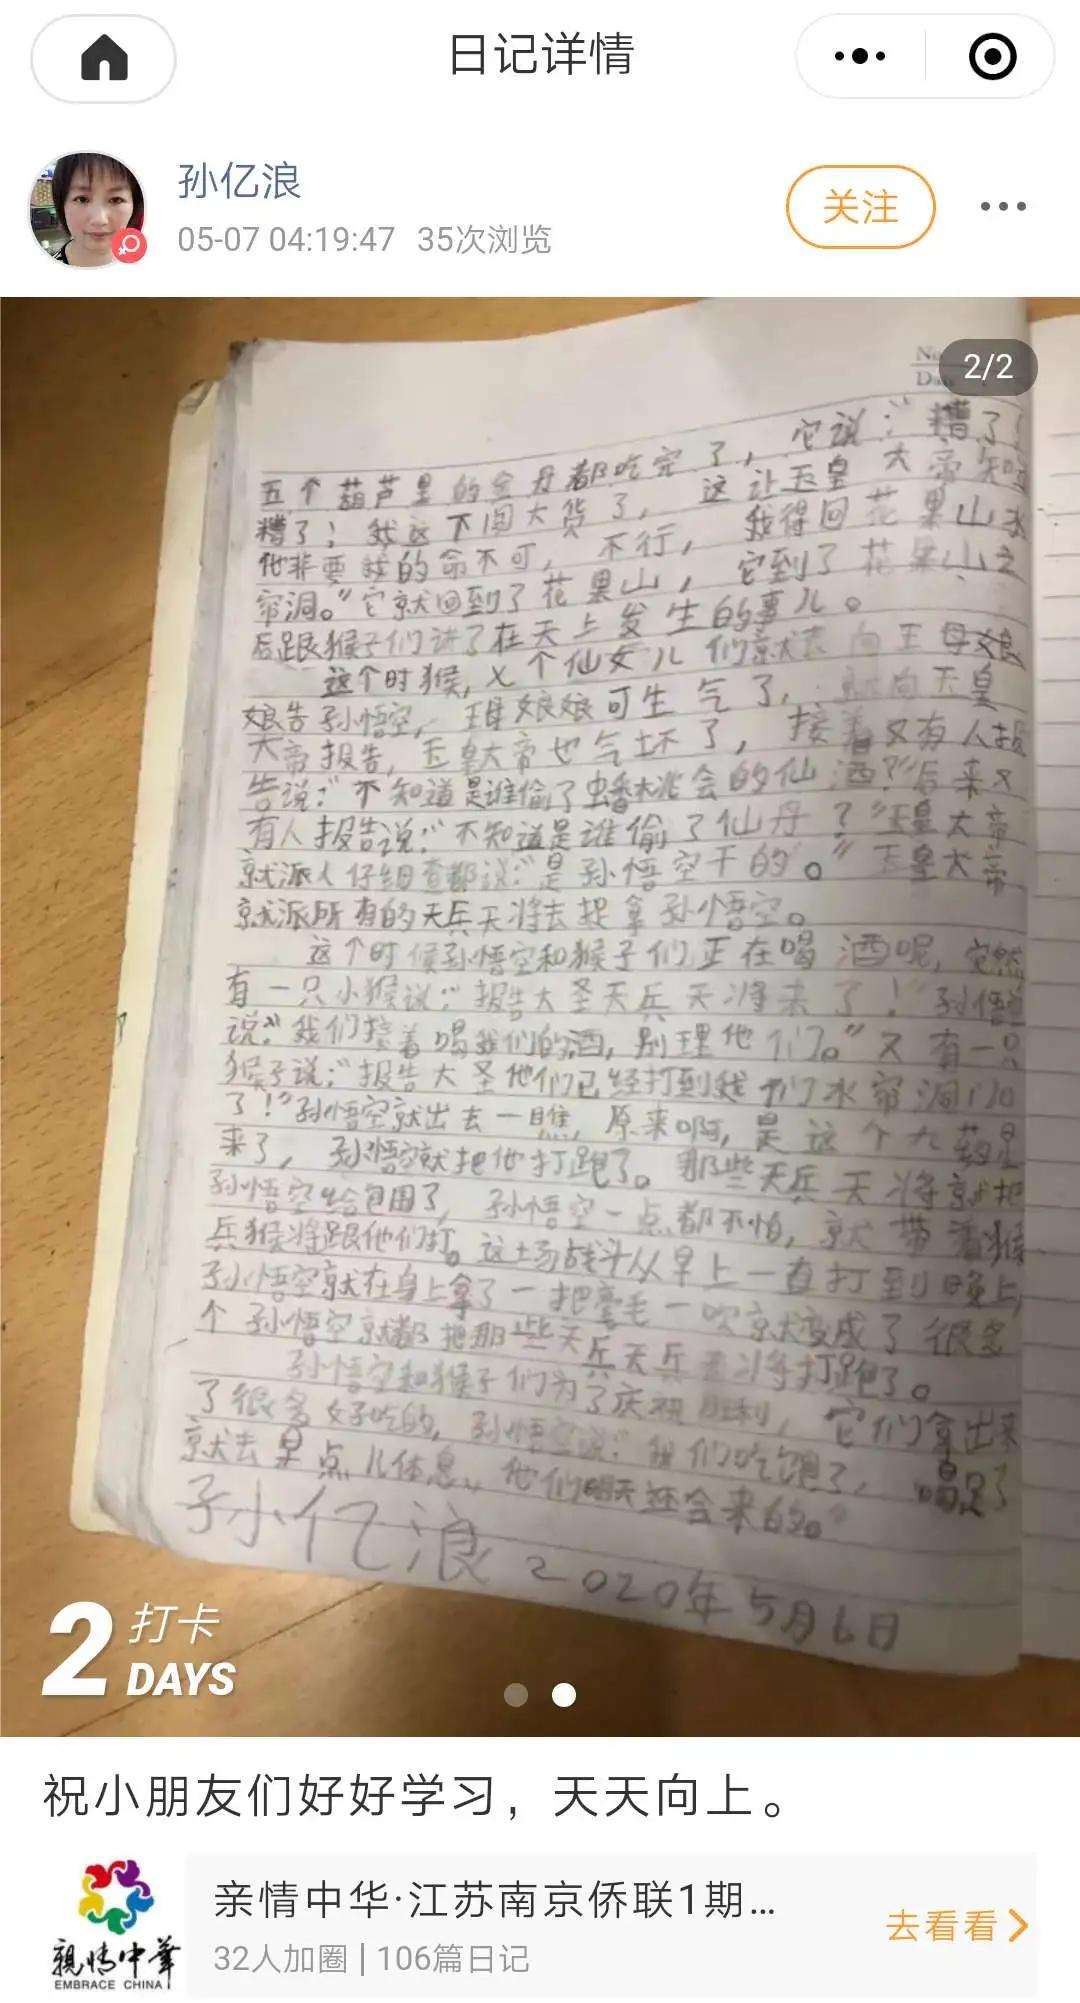 日记详情
孙亿浪
05-07 04:19:47 35次浏览
关注
2/2
No
Da
五个葫芦里的金丹都吃完了，它说：“糟了！
糟了！我这下闯大货了，这让玉皇大帝知道
他非要我的命不可，不行，我得回花果山水
帘洞。”它就回到了花果山，它到了花果山之
后跟猴子们讲了在天上发生的事儿。
这个时猴，七个仙女儿们就去向王母娘
娘告孙悟空，王母娘娘可生气了，就向天皇
大帝报告，玉皇大帝也气坏了，接着又有人报
告说：“不知道是谁偷了蟠桃会的仙酒？”后来又
有人报告说：“不知道是谁偷了仙丹？”玉皇大帝
就派人仔细查都说：“是孙悟空干的。”玉皇大帝
就派所有的天兵天将去捉拿孙悟空。
这个时候孙悟空和猴子们正在喝酒呢，突然
有一只小猴说：“报告大圣天兵天将来了！”孙悟空
说：“我们接着喝我们的酒，别理他们。”又有一只
猴子说：“报告大圣他们已经打到我们水帘洞门口
了！”孙悟空就出去一瞧，原来啊，是这个九药星
来了，孙悟空就把他打跑了。那些天兵天将就把
孙悟空给包围了，孙悟空一点都不怕，就带着猴
兵猴将跟他们打。这场战斗从早上一直打到晚上，
孙悟空就在身上拿了一把毫毛一吹就变成了很多
个孙悟空就都把那些天兵天兵天将打跑了。
孙悟空和猴子们为了庆祝胜利，它们拿出来
了很多好吃的，孙悟空说：“我们吃饱了，喝足了
就去早点儿休息，他们明天还会来的。”
孙亿浪 2020年5月6日
2 打卡
DAYS
祝小朋友们好好学习，天天向上。
親情中華
EMBRACE CHINA
亲情中华·江苏南京侨联1期...
32人加圈 | 106篇日记
去看看